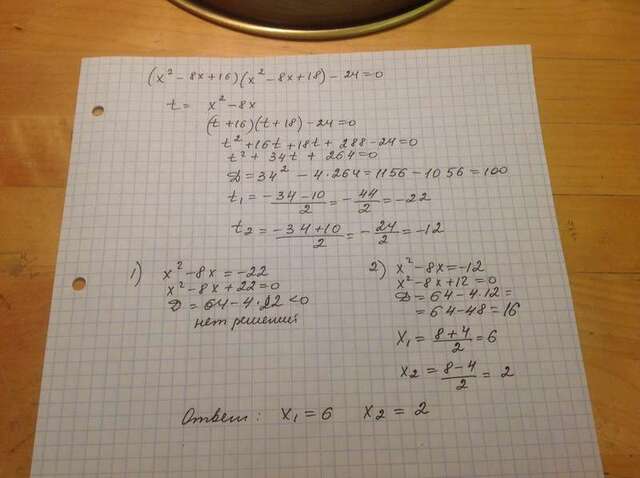 (x² - 8x + 16)(x² - 8x + 18) - 24 = 0
t = x² - 8x
(t + 16)(t + 18) - 24 = 0
t² + 16t + 18t + 288 - 24 = 0
t² + 34t + 264 = 0
D = 34² - 4·264 = 1156 - 1056 = 100
t₁ = (-34 - 10)/2 = -44/2 = -22
t₂ = (-34 + 10)/2 = -24/2 = -12
1) x² - 8x = -22
x² - 8x + 22 = 0
D = 64 - 4·22 < 0
нет решений
2) x² - 8x = -12
x² - 8x + 12 = 0
D = 64 - 4·12 =
= 64 - 48 = 16
x₁ = (8 + 4)/2 = 6
x₂ = (8 - 4)/2 = 2
Ответ: x₁ = 6 x₂ = 2